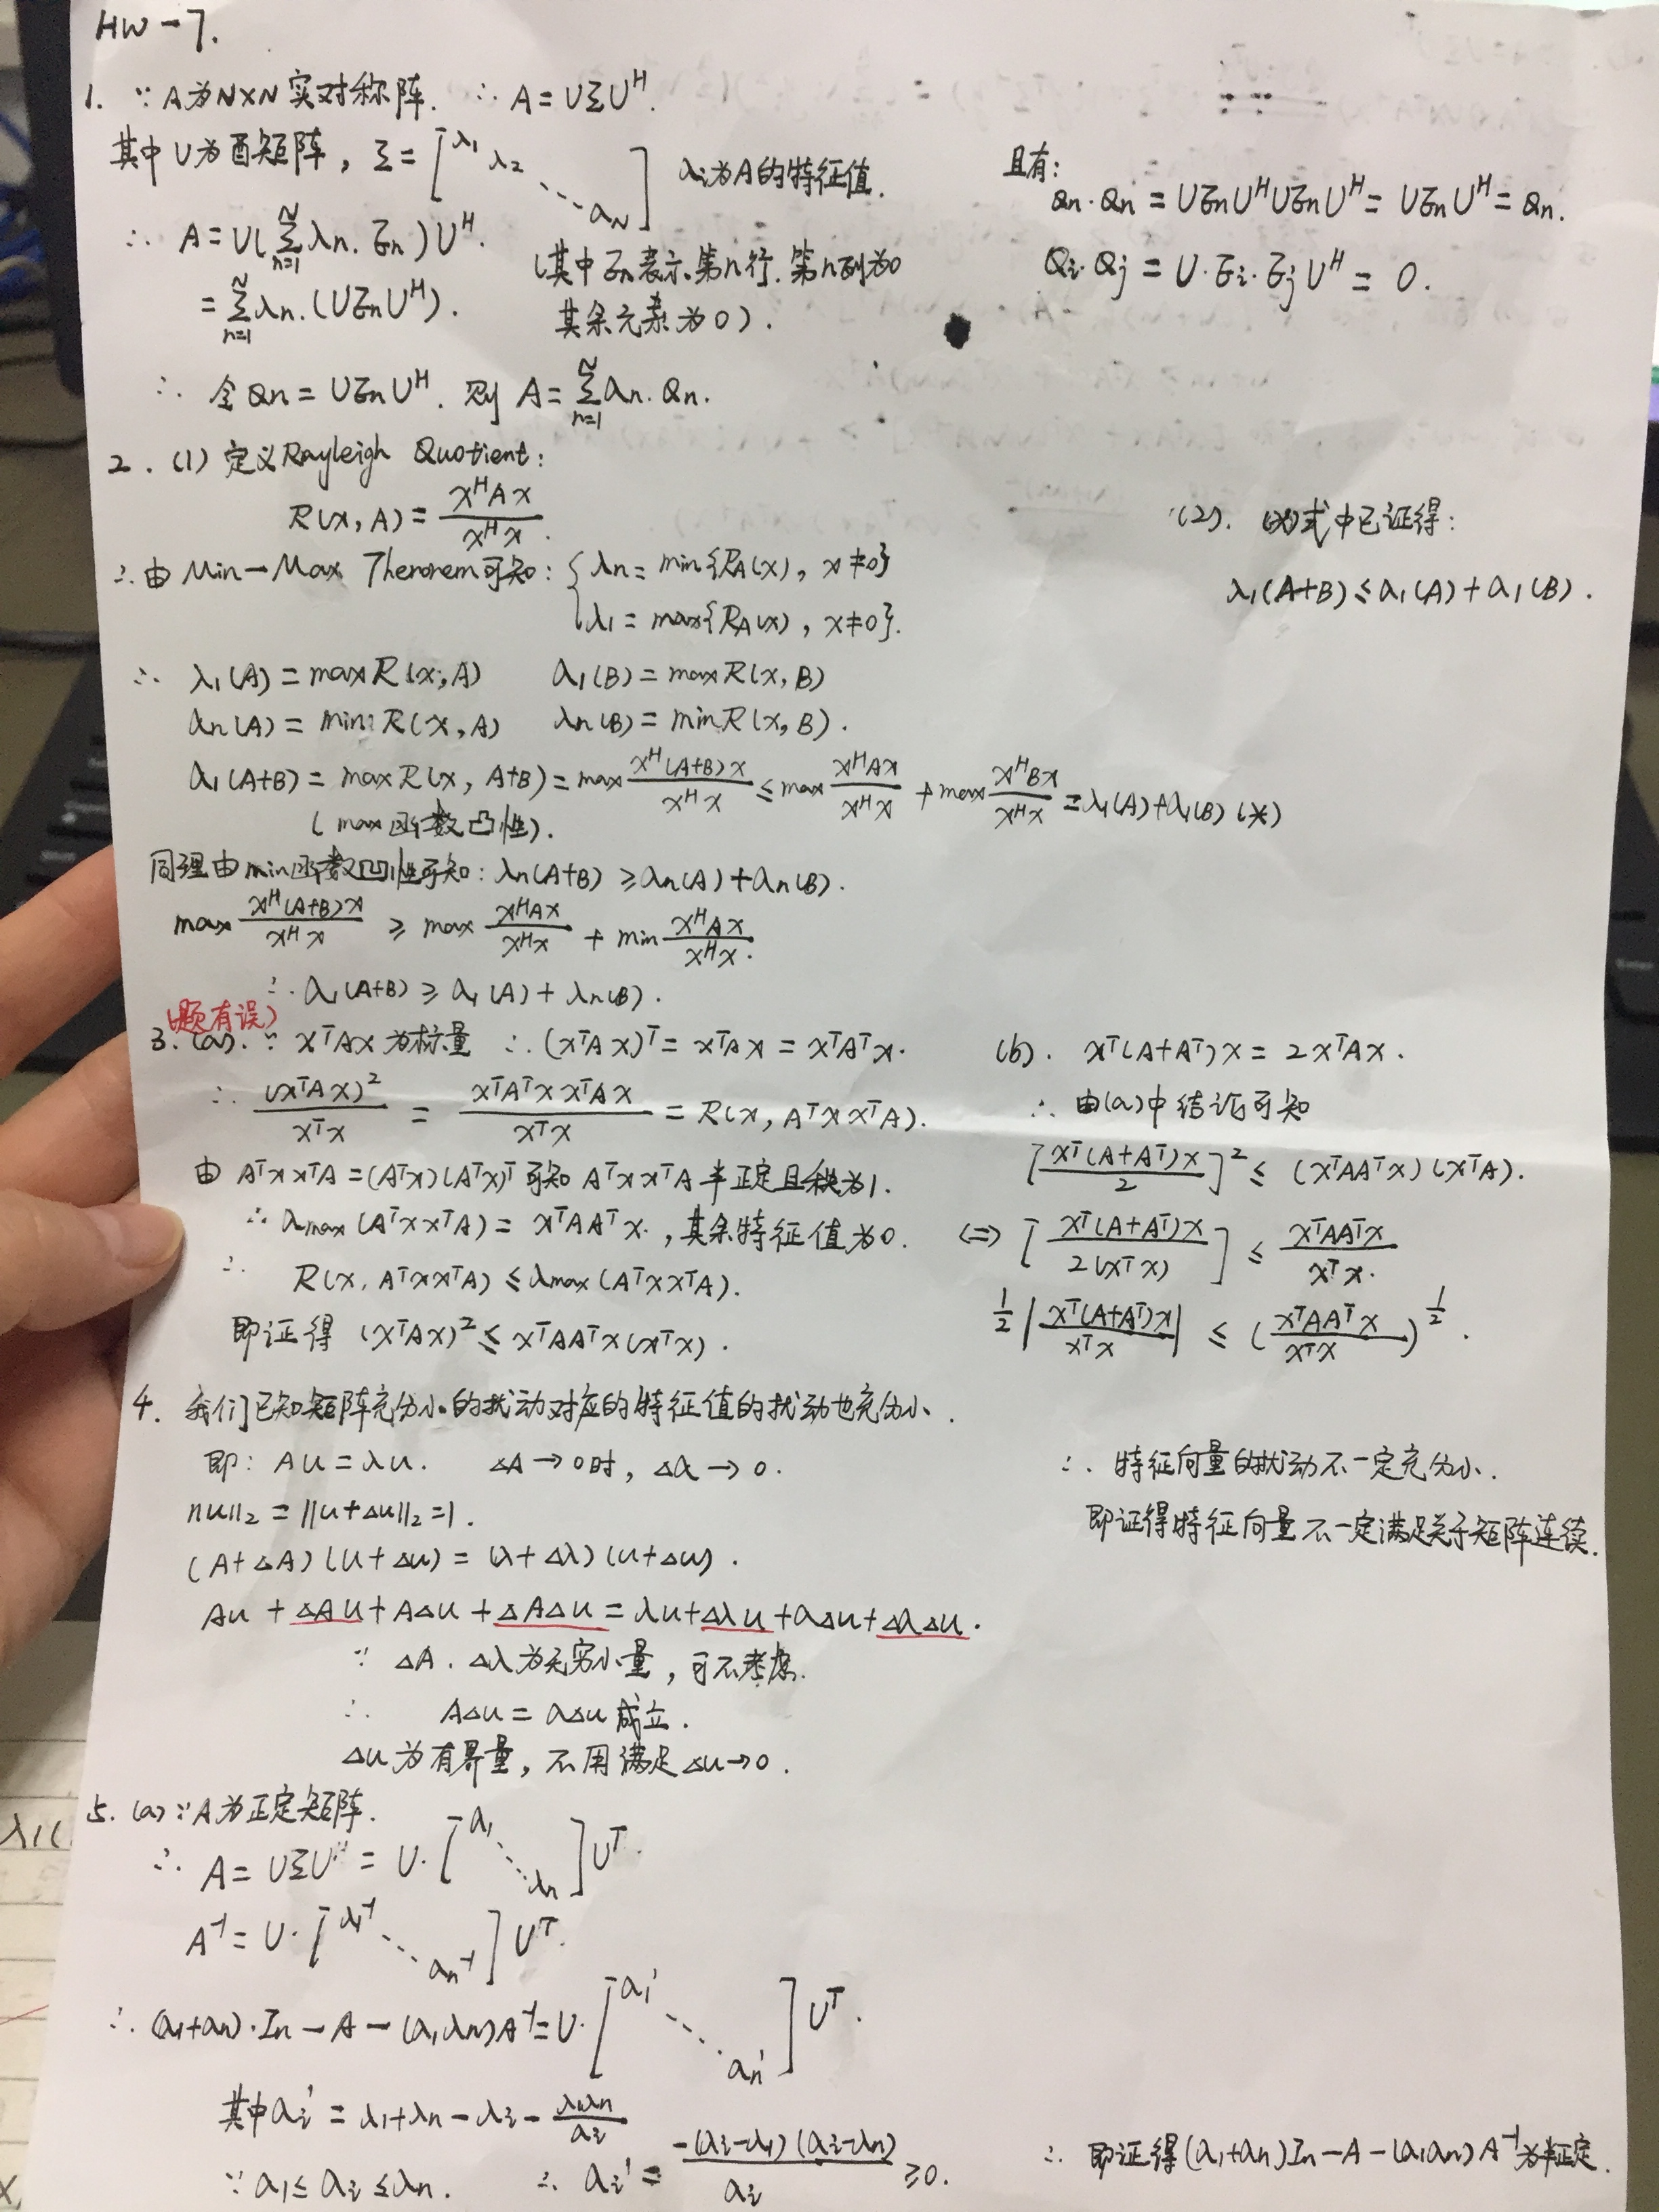 HW-7.
1. ∵ A为N×N实对称阵. ∴ A=UΣU^H.
其中U为酉矩阵, Σ=[λ1 λ2 ⋱ λN] λi为A的特征值.
∴ A=U(Σ_{n=1}^{N} λn·En)U^H.
(其中En表示第n行.第n列为0
=Σ_{n=1}^{N} λn.(UEnU^H).
其余元素为0).
∴ 令Qn=UEnU^H. 则 A=Σ_{n=1}^{N} λn.Qn.
且有:
Qn·Qn=UEnU^HUEnU^H=UEnU^H=Qn.
Qi·Qj=U·Ei·EjU^H=0.
2.(1) 定义Rayleigh Quotient:
R(x,A)=\frac{x^HAx}{x^Hx}.
∴由Min-Max Therorem可知: { λn=min{RA(x), x≠0}
λ1=max{RA(x), x≠0}.
∴ λ1(A)=maxR(x,A) λ1(B)=maxR(x,B)
λn(A)=minR(x,A) λn(B)=minR(x,B).
λ1(A+B)=maxR(x,A+B)=max\frac{x^H(A+B)x}{x^Hx}≤max\frac{x^HAx}{x^Hx}+max\frac{x^HBx}{x^Hx}=λ1(A)+λ1(B) (*)
(max函数凸性).
同理由min函数凹性可知: λn(A+B)≥λn(A)+λn(B).
max\frac{x^H(A+B)x}{x^Hx} ≥ max\frac{x^HAx}{x^Hx}+min\frac{x^HAx}{x^Hx}.
∴ λ1(A+B)≥λ1(A)+λn(B).
(2). (*)式中已证得:
λ1(A+B)≤λ1(A)+λ1(B).
(题有误)
3.(a).∵ x^TAx为标量 ∴(x^TAx)^T=x^TAx=x^TA^Tx.
∴ \frac{(x^TAx)^2}{x^Tx}=\frac{x^TA^Txx^TAx}{x^Tx}=R(x,A^Txx^TA).
由 A^Txx^TA=(A^Tx)(A^Tx)^T可知 A^Txx^TA半正定且秩为1.
∴ λmax(A^Txx^TA)=x^TAA^Tx., 其余特征值为0.
∴ R(x,A^Txx^TA)≤λmax(A^Txx^TA).
即证得 (x^TAx)^2≤x^TAA^Tx(x^Tx).
(b). x^T(A+A^T)x=2x^TAx.
∴ 由(a)中结论可知
[\frac{x^T(A+A^T)x}{2}]^2≤(x^TAA^Tx)(x^TA).
⇔ [\frac{x^T(A+A^T)x}{2(x^Tx)}]≤\frac{x^TAA^Tx}{x^Tx}.
\frac{1}{2}|\frac{x^T(A+A^T)x}{x^Tx}|≤(\frac{x^TAA^Tx}{x^Tx})^{\frac{1}{2}}.
4. 我们已知矩阵充分小的扰动对应的特征值的扰动也充分小.
即: Au=λu. ΔA→0时, Δλ→0.
||u||2=||u+Δu||2=1.
(A+ΔA)(u+Δu)=(λ+Δλ)(u+Δu).
Au+ΔAu+AΔu+ΔAΔu=λu+Δλu+λΔu+ΔλΔu.
∵ ΔA.Δλ为无穷小量, 可不考虑.
∴ AΔu=λΔu成立.
Δu为有界量, 不用满足Δu→0.
∴ 特征向量的扰动不一定充分小.
即证得特征向量不一定满足关于矩阵连续.
5.(a)∵A为正定矩阵.
∴ A=UΣU^H=U·[λ1 ⋱ λn]U^T.
A^{-1}=U·[λ1^{-1} ⋱ λn^{-1}]U^T.
∴ (λ1+λn)·In-A-(λ1λn)A^{-1}=U·[λ1' ⋱ λn']U^T.
其中λi'=λ1+λn-λi-\frac{λ1λn}{λi}
∵ λ1≤λi≤λn. ∴ λi'=\frac{-(λi-λ1)(λi-λn)}{λi}≥0.
∴ 即证得(λ1+λn)In-A-(λ1λn)A^{-1}为半正定.
λ1(